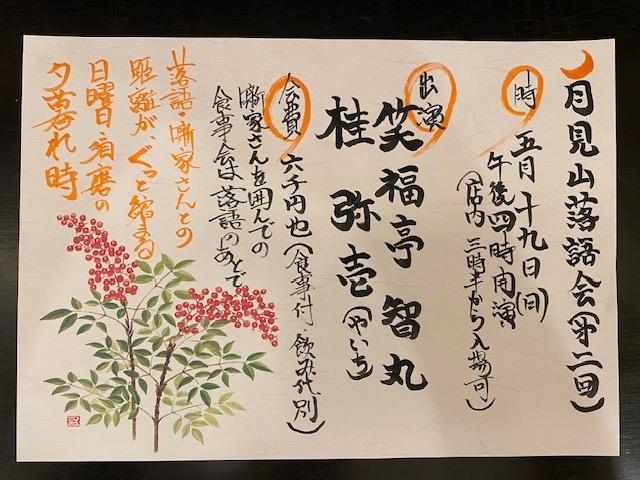 月見山落語会(第二回)
時 五月十九日(日)
午後四時開演
(店内 三時半から入場可)
出演 笑福亭 智丸
桂 弥壱(やいち)
会費 六千円也(食事付・飲み代別)
噺家さんを囲んでの
食事会は落語のあとで
落語・噺家さんとの
距離がぐっと縮まる
日曜日・須磨の
夕暮れ時